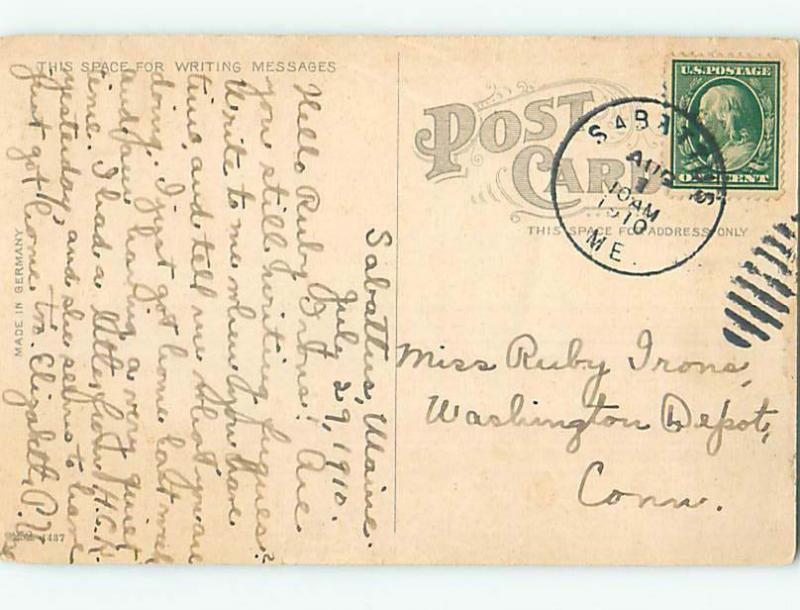 THIS SPACE FOR WRITING MESSAGES
Sabattus, Maine.
July 29, 1910.
Hello Ruby Irons! Are
you still writing fugues?
Write to me when you have
time, and tell me what you are
doing. I just got home last week
and am having a very quiet
time. I had a letter from H.C.K.
yesterday, and she seems to have
just got home too. Elizabeth P.
MADE IN GERMANY
POST CARD
THIS SPACE FOR ADDRESS ONLY
U.S. POSTAGE
ONE CENT
SABATTUS
AUG
1
10 AM
1910
ME.
Miss Ruby Irons,
Washington Depot,
Conn.